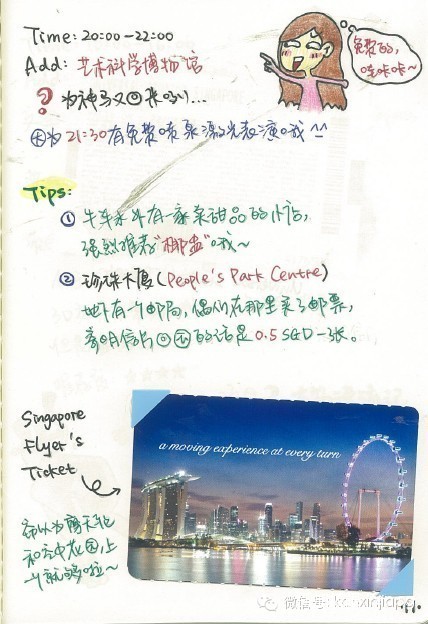 Time: 20:00-22:00
Add: 艺术科学博物馆
免费的,
哇咔咔~
? 为神马又回来叻...
因为21:30有免费喷泉激光表演哦^^
Tips:
① 牛车水有一家卖甜品的小店,
强烈推荐"椰盅"哦~
② 珍珠大厦(People's Park Centre)
地下有一个邮局, 偶们在那里买了邮票,
寄明信片回国的话是0.5SGD一张。
Singapore
Flyer's
Ticket
a moving experience at every turn
和空中花园上
一个就够啦~
微信号: kanxinjiapo